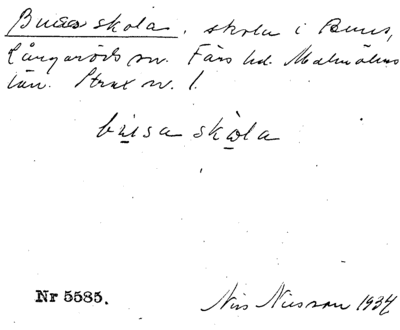 Buses skola, skola i Buus,
Långaröds sn. Färs hd. Malmöhus
län. Strax nv. l.
busa skola
Nr 5585.
Nils Nilsson 1934